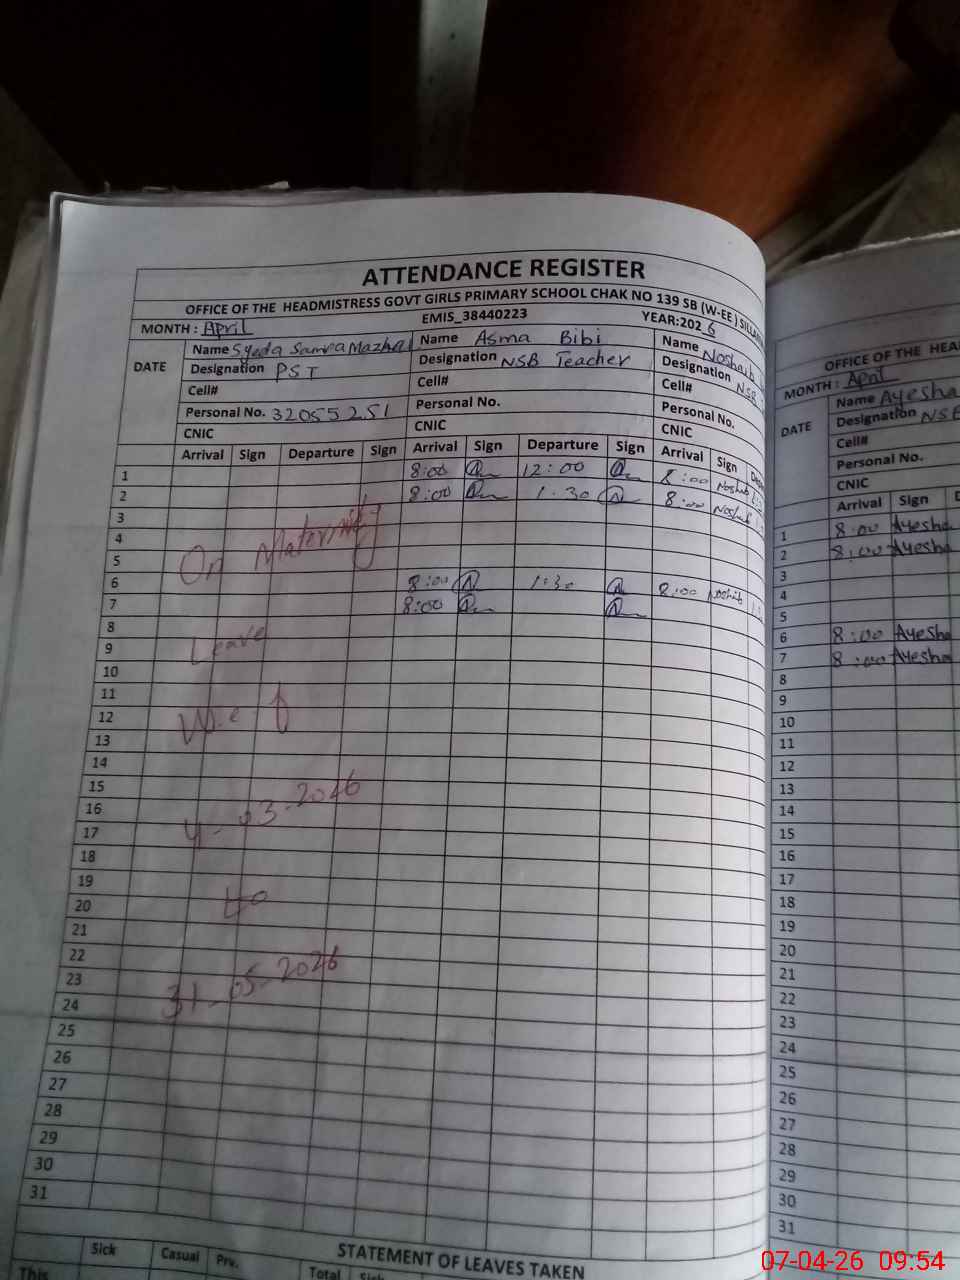 ATTENDANCE REGISTER
OFFICE OF THE HEADMISTRESS GOVT GIRLS PRIMARY SCHOOL CHAK NO 139 SB (W-EE)
MONTH : April EMIS_38440223 YEAR:2026
DATE
Name Syeda Samra Mazhar
Designation PST
Cell#
Personal No. 32055251
CNIC
Name Asma Bibi
Designation NSB Teacher
Cell#
Personal No.
CNIC
Name Noshaib
Designation NSB
Cell#
Personal No.
CNIC
Arrival Sign Departure Sign Arrival Sign Departure Sign Arrival Sign
1 8:00 12:00 8:00 Noshaib
2 8:00 1:30 8:00 Noshaib
3
4
5
On Maternity
6 8:00 1:30 8:00 Noshaib
7 8:00
8
9
Leave
10
11
12
W.e f
13
14
15
16
17
4-03-2026
18
19
20
to
21
22
23
24
31-05-2026
25
26
27
28
29
30
31
STATEMENT OF LEAVES TAKEN
Sick Casual Prv. Total Sick
This
OFFICE OF THE HEA
MONTH : April
DATE
Name Ayesha
Designation NSB
Cell#
Personal No.
CNIC
Arrival Sign
1 8:00 Ayesha
2 8:00 Ayesha
3
4
5
6 8:00 Ayesha
7 8:00 Ayesha
8
9
10
11
12
13
14
15
16
17
18
19
20
21
22
23
24
25
26
27
28
29
30
31
07-04-26 09:54